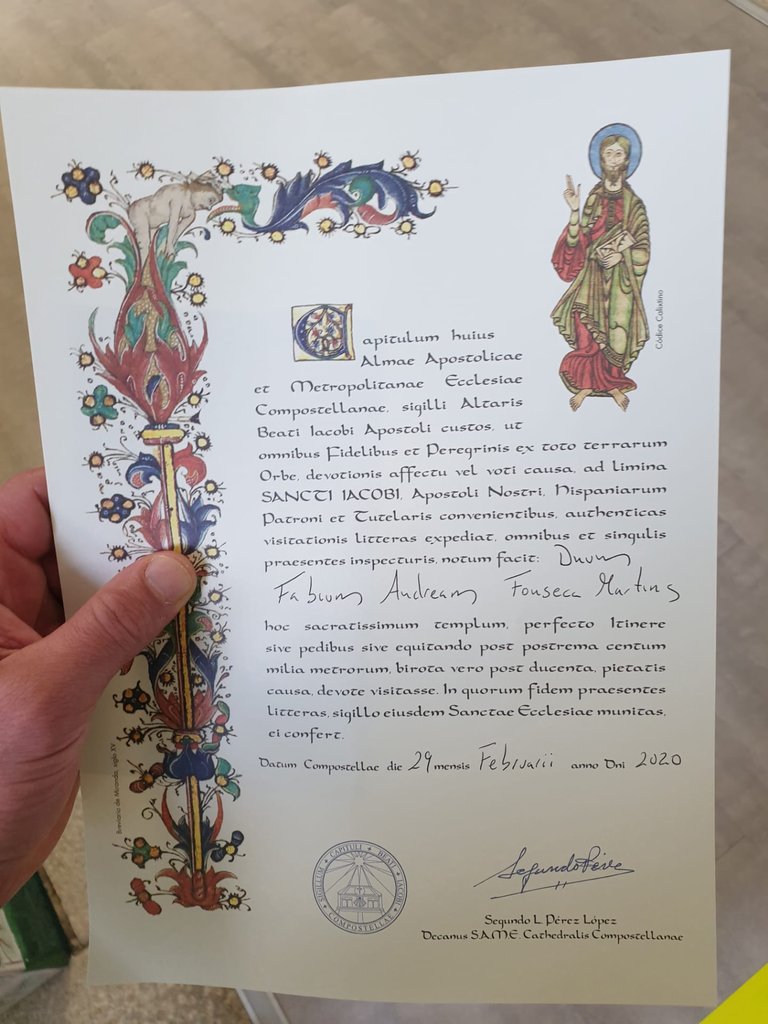 Códice Calixtino
Capitulum huius
Almae Apostolicae
et Metropolitanae Ecclesiae
Compostellanae, sigilli Altaris
Beati Iacobi Apostoli custos, ut
omnibus Fidelibus et Peregrinis ex toto terrarum
Orbe, devotionis affectu vel voti causa, ad limina
SANCTI IACOBI, Apostoli Nostri, Hispaniarum
Patroni et Tutelaris convenientibus, authenticas
visitationis litteras expediat, omnibus et singulis
praesentes inspecturis, notum facit: Dnum
Fabium Andream Fonseca Martins
hoc sacratissimum templum, perfecto Itinere
sive pedibus sive equitando post postrema centum
milia metrorum, birota vero post ducenta, pietatis
causa, devote visitasse. In quorum fidem praesentes
litteras, sigillo eiusdem Sanctae Ecclesiae munitas,
ei confert.
Datum Compostellae die 29 mensis Februarii anno Dni 2020
Breviario de Miranda, siglo XV
SIGILLUM CAPITULI BEATI IACOBI COMPOSTELLAE
Segundo Pérez
Segundo L. Pérez López
Decanus S.A.M.E. Cathedralis Compostellanae